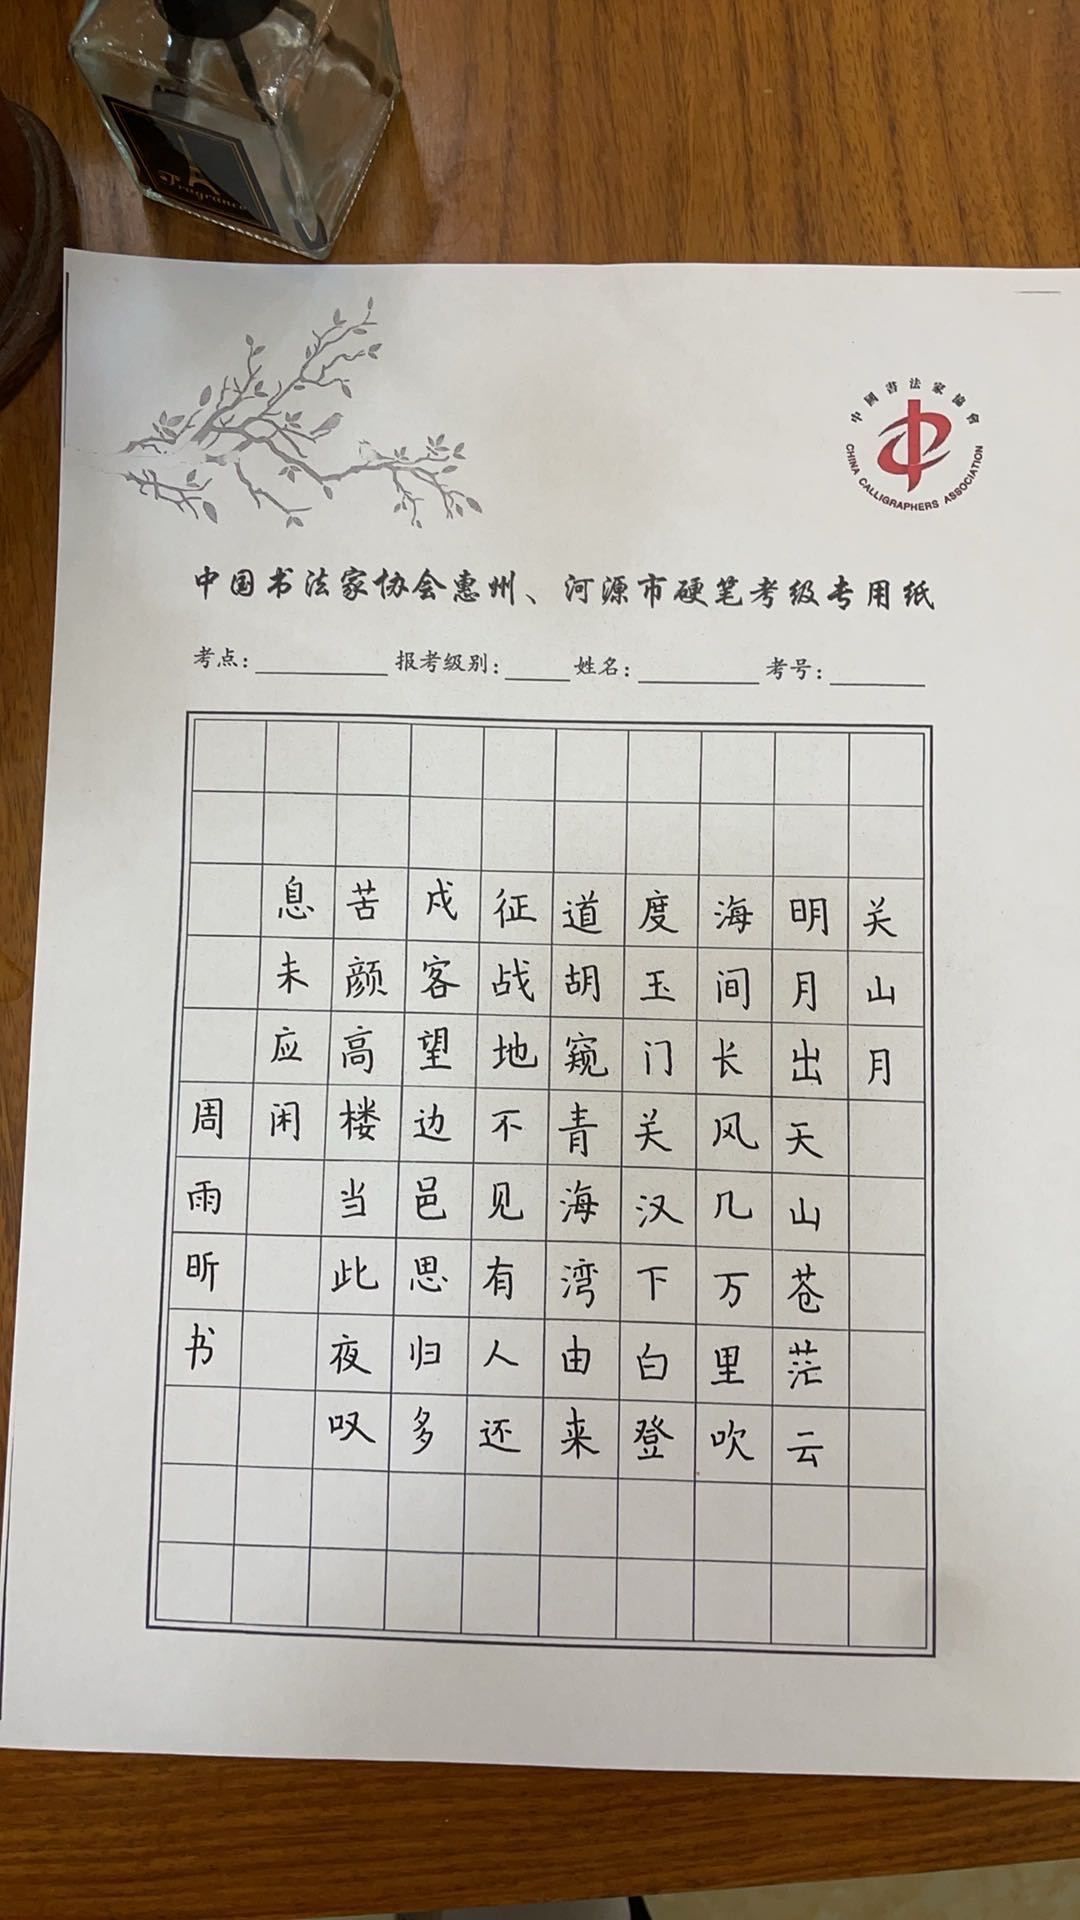 Fragrance
中國書法家協會
CHINA CALLIGRAPHERS ASSOCIATION
中国书法家协会惠州、河源市硬笔考级专用纸
考点: 报考级别: 姓名: 考号:
关山月
明月出天山苍茫云
海间长风几万里吹
度玉门关汉下白登
道胡窥青海湾由来
征战地不见有人还
戍客望边邑思归多
苦颜高楼当此夜叹
息未应闲
周雨昕书